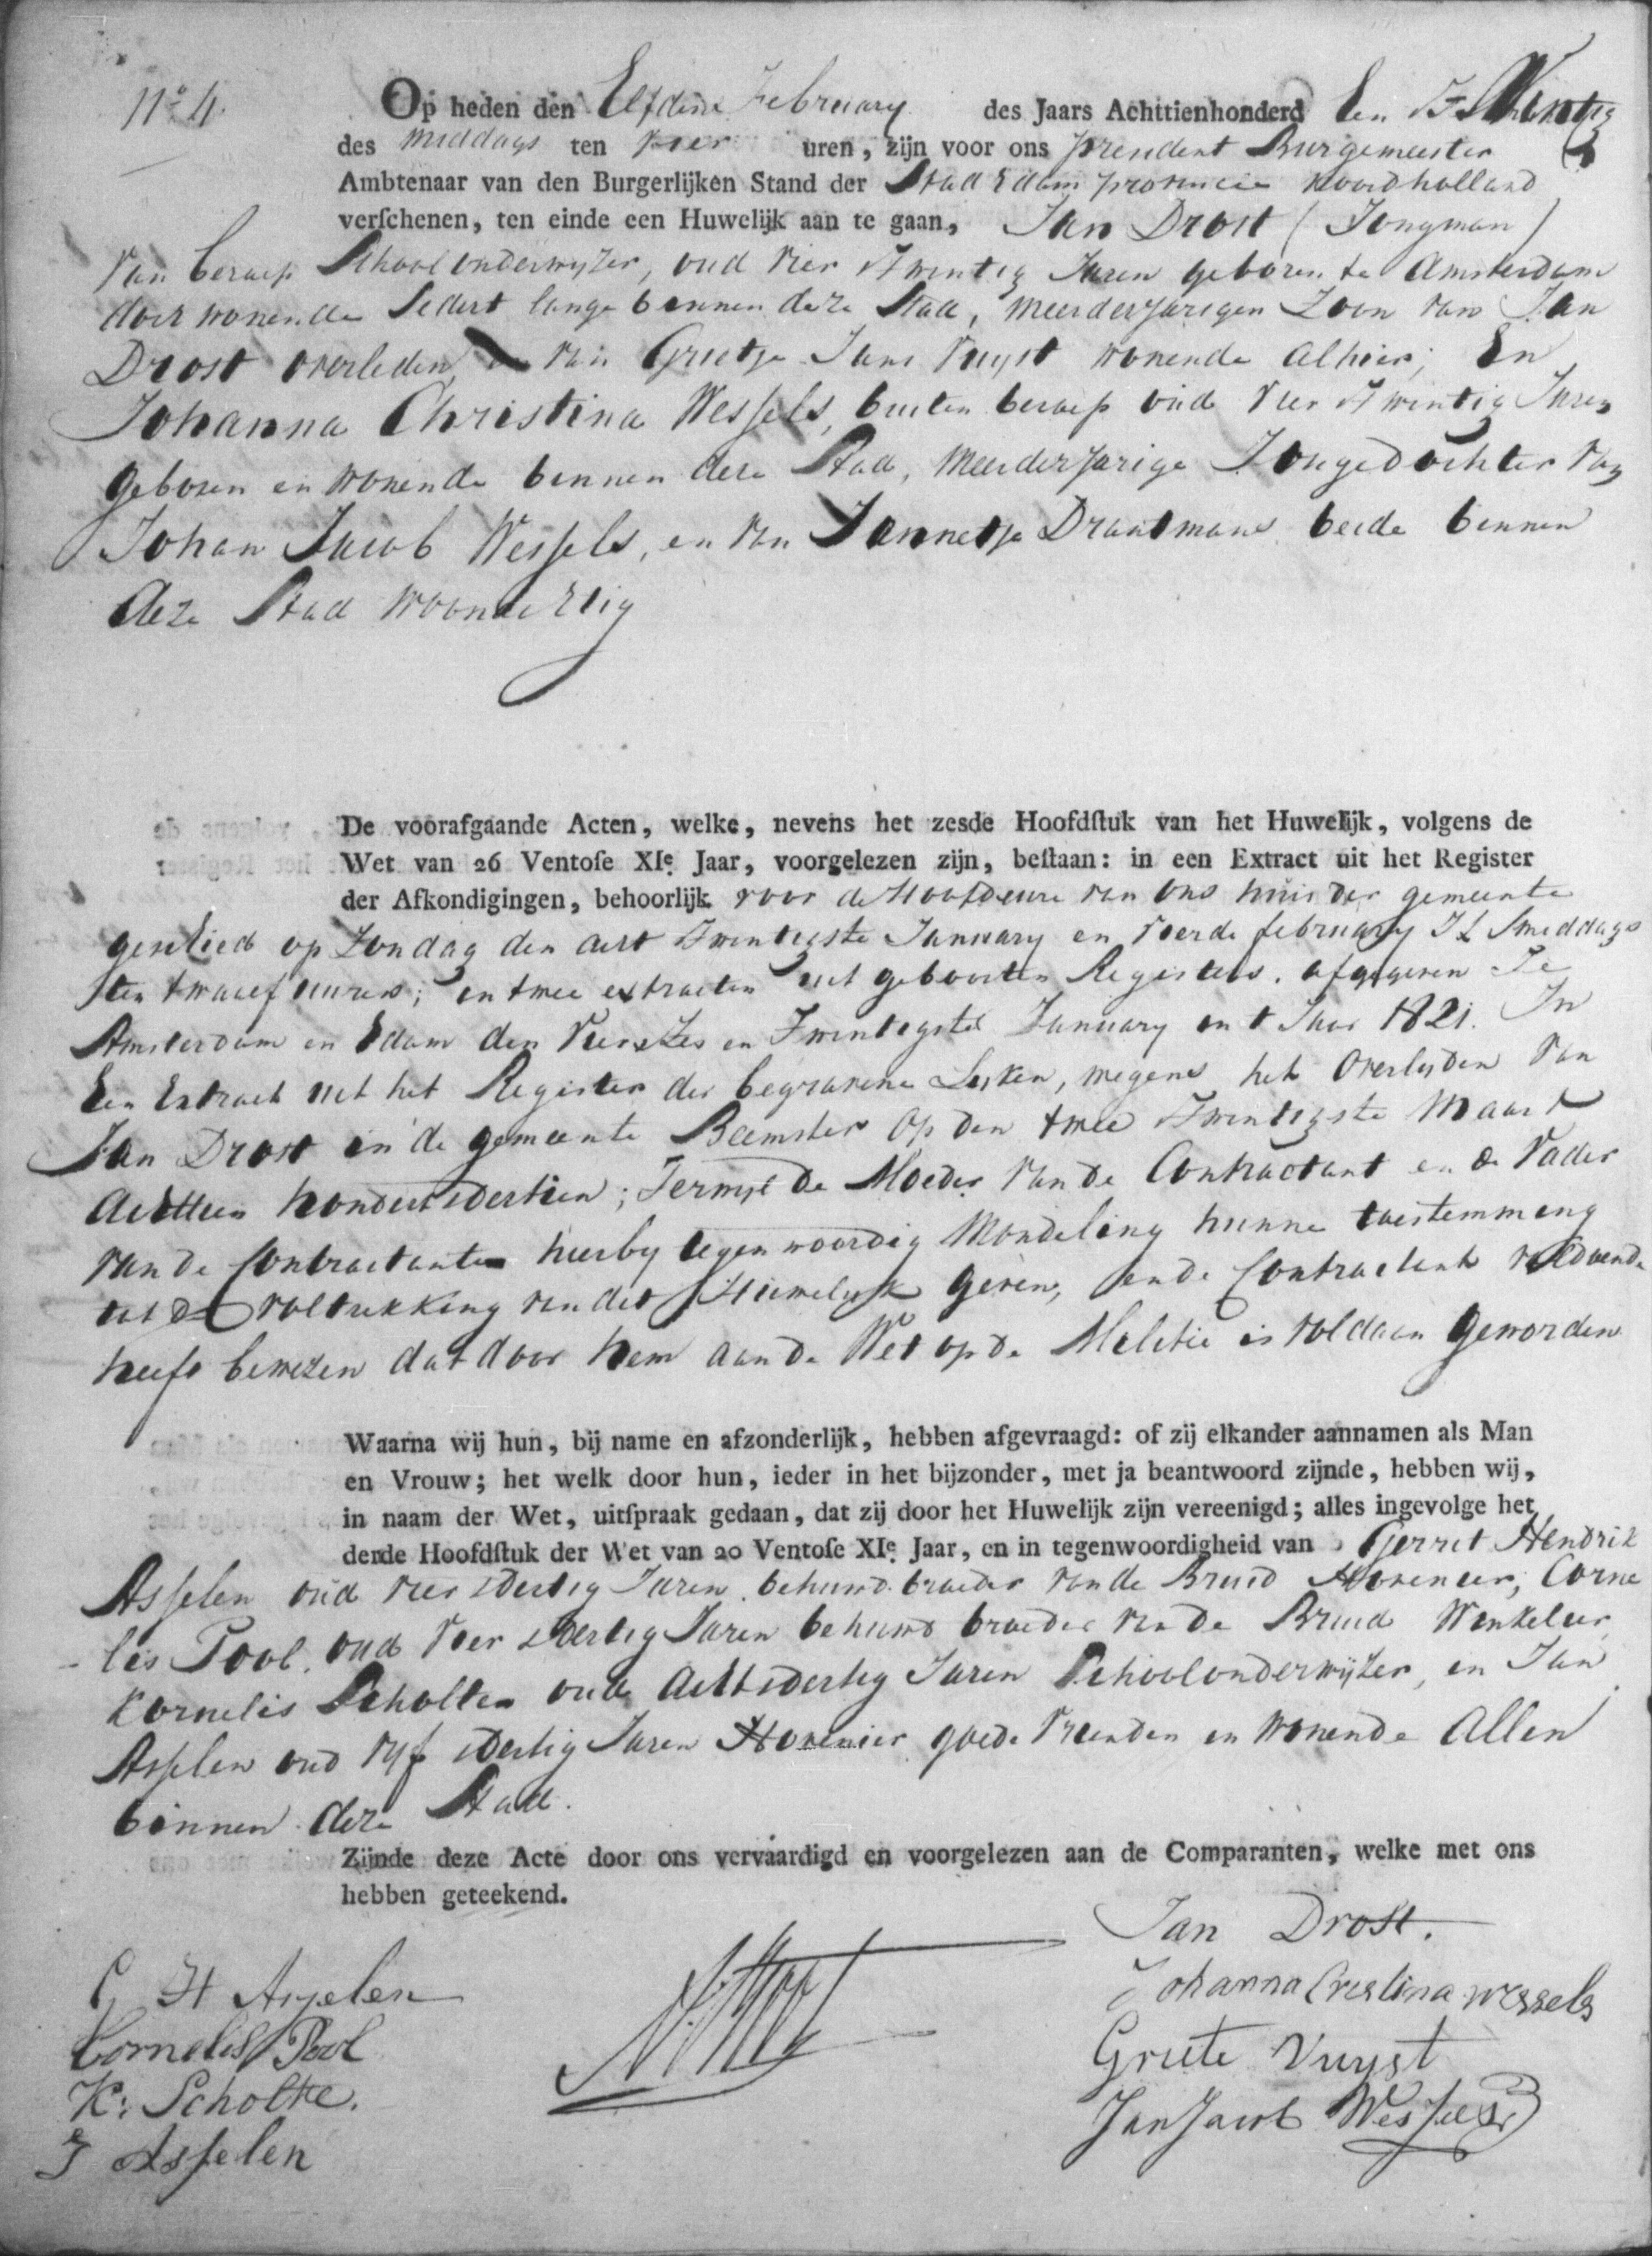 Nº 4.
Op heden den Elfden February des Jaars Achttienhonderd Een & Twintig
des middags ten vier uren, zijn voor ons president Burgemeester
Ambtenaar van den Burgerlijken Stand der Stad Edam provincie noordholland
verſchenen, ten einde een Huwelijk aan te gaan, Jan Drost (Jongman)
van beroep Schoolonderwyzer, oud vier & twintig Jaren geboren te Amsterdam
doch wonende Sedert lange binnen deze Stad, meerderjarigen Zoon van Jan
Drost overleden, en van Grietje Jans Vuyst wonende alhier; En
Johanna Christina Wessels, buiten beroep oud vier & twintig Jaren
geboren en wonende binnen deze Stad, meerderjarige Jongedochter van
Johan Jacob Wessels, en van Jannetje Draatmans beide binnen
deze Stad woonachtig
De voorafgaande Acten, welke, nevens het zesde Hoofdſtuk van het Huwelijk, volgens de
Wet van 26 Ventoſe XIe Jaar, voorgelezen zijn, beſtaan: in een Extract uit het Register
der Afkondigingen, behoorlijk voor de Hoofdeure van ons huis der gemeente
geschied op Zondag den acht & twintigste January en vierde february Jl Smiddags
ten twaalf uuren; en twee extracten uit geboorten Registers, afgegeven Te
Amsterdam en Edam den Vier & Zes en Twintigste January en t Jaar 1821. In
Een Extract uit het Register der begravene Lyken, wegens het Overlyden van
Jan Drost in de gemeente Beemster op den twee & twintigste Maart
Achttien honderd & dertien; Terwyl de Moeder van de Contractant en de Vader
van de Contractante hierby tegenwoordig Mondeling hunne toestemming
tot de voltrekking van dit Huwelyk geven, en de Contractant voldoende
heeft bewezen dat door hem aan de Wet op de Melitie is voldaan geworden
Waarna wij hun, bij name en afzonderlijk, hebben afgevraagd: of zij elkander aannamen als Man
en Vrouw; het welk door hun, ieder in het bijzonder, met ja beantwoord zijnde, hebben wij,
in naam der Wet, uitſpraak gedaan, dat zij door het Huwelijk zijn vereenigd; alles ingevolge het
derde Hoofdſtuk der Wet van 20 Ventoſe XIe Jaar, en in tegenwoordigheid van Gerrit Hendrik
Asselen oud vier & dertig Jaren behuwd broeder van de Bruid Hovenier, Corne
lis Pool, oud vier & dertig Jaren behuwd broeder van de Bruid Winkelier
Kornelis Scholten oud Acht & dertig Jaren Schoolonderwyzer, en Jan
Asselen oud vyf & dertig Jaren Hovenier goede vrienden en wonende Allen
binnen deze Stad.
Zijnde deze Acte door ons vervaardigd en voorgelezen aan de Comparanten, welke met ons
hebben geteekend.
Jan Drost.
Johanna Crestina Wessels
Griete Vuyst
Jan Jacob Wessels
G H Asselen
Cornelis Pool
K: Scholte.
J Asselen